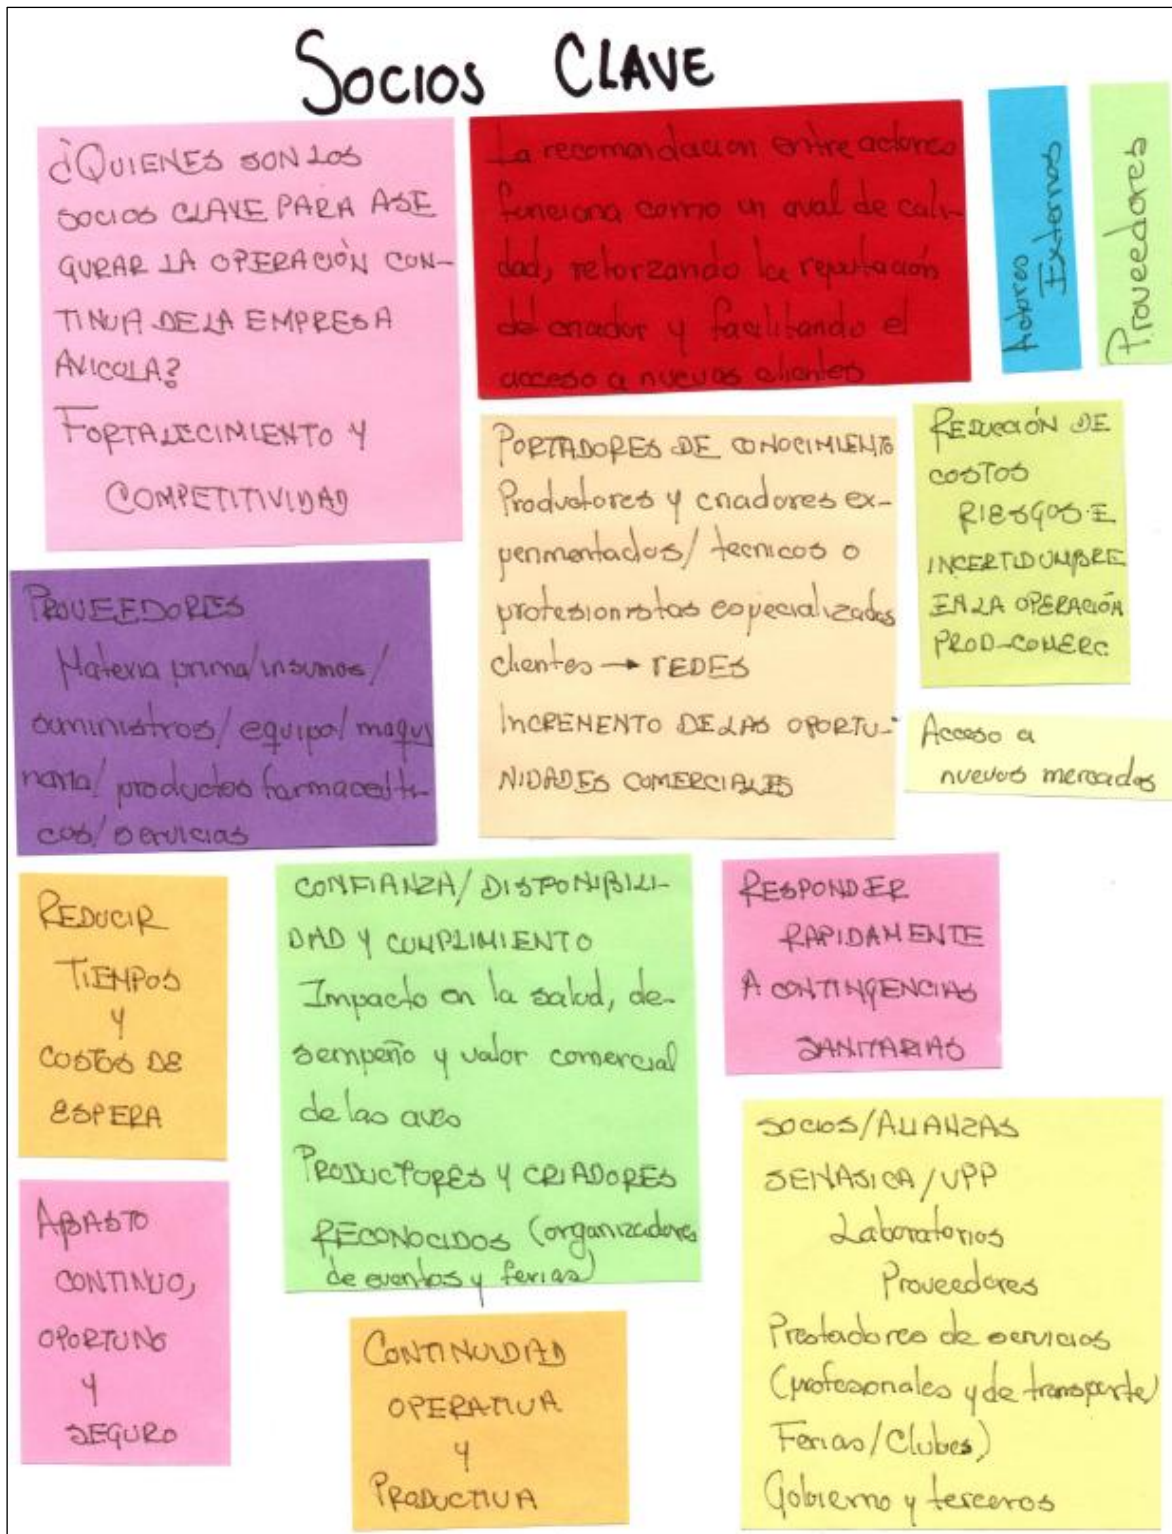 SOCIOS CLAVE
¿QUIENES SON LOS
SOCIOS CLAVE PARA ASE
GURAR LA OPERACIÓN CON-
TINUA DE LA EMPRESA
AVICOLA?
FORTALECIMIENTO Y
COMPETITIVIDAD
La recomendacion entre actores
funciona como un aval de cali-
dad, reforzando la reputación
de criador y facilitando el
acceso a nuevos clientes
Actores
Externos
Proveedores
PORTADORES DE CONOCIMIENTO
Productores y criadores ex-
perimentados/ tecnicos o
profesionistas especializados
clientes → REDES
INCREMENTO DE LAS OPORTU-
NIDADES COMERCIALES
REDUCCIÓN DE
COSTOS
RIESGOS E
INCERTIDUMBRE
EN LA OPERACIÓN
PROD-COMERC
Acceso a
nuevos mercados
PROVEEDORES
Materia prima/insumos/
suministros/ equipo/ maqui
naria/ productos farmaceúti-
cos/ servicios
REDUCIR
TIEMPOS
Y
COSTOS DE
ESPERA
CONFIANZA/ DISPONIBILI-
DAD Y CUMPLIMIENTO
Impacto en la salud, de-
sempeño y valor comercial
de las aves
PRODUCTORES Y CRIADORES
RECONOCIDOS (organizadores
de eventos y ferias)
RESPONDER
RAPIDAMENTE
A CONTINGENCIAS
SANITARIAS
ABASTO
CONTINUO,
OPORTUNO
Y
SEGURO
CONTINUIDAD
OPERATIVA
Y
PRODUCTIVA
SOCIOS/ALIANZAS
SENASICA/UPP
Laboratorios
Proveedores
Prestadores de servicios
(profesonales y de transporte)
Ferias/Clubes)
Gobierno y terceros